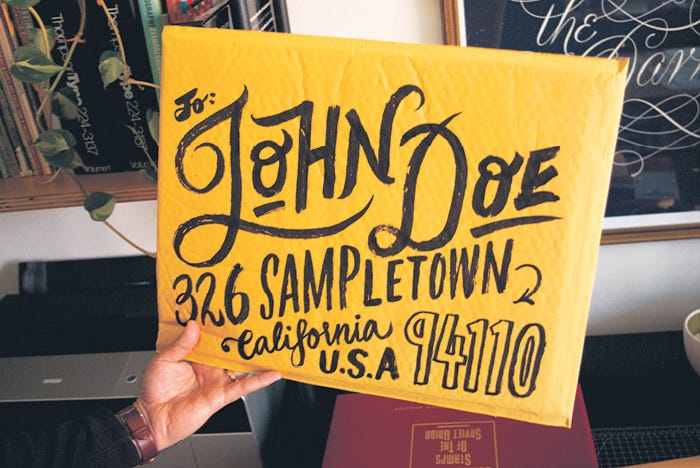 To:
JOHN DOE
326 SAMPLETOWN
California 94110
U.S.A
the
STAMPS
OF THE
SOVIET UNION
Thompson
224-3137
Volume 1
224-3137
Volume